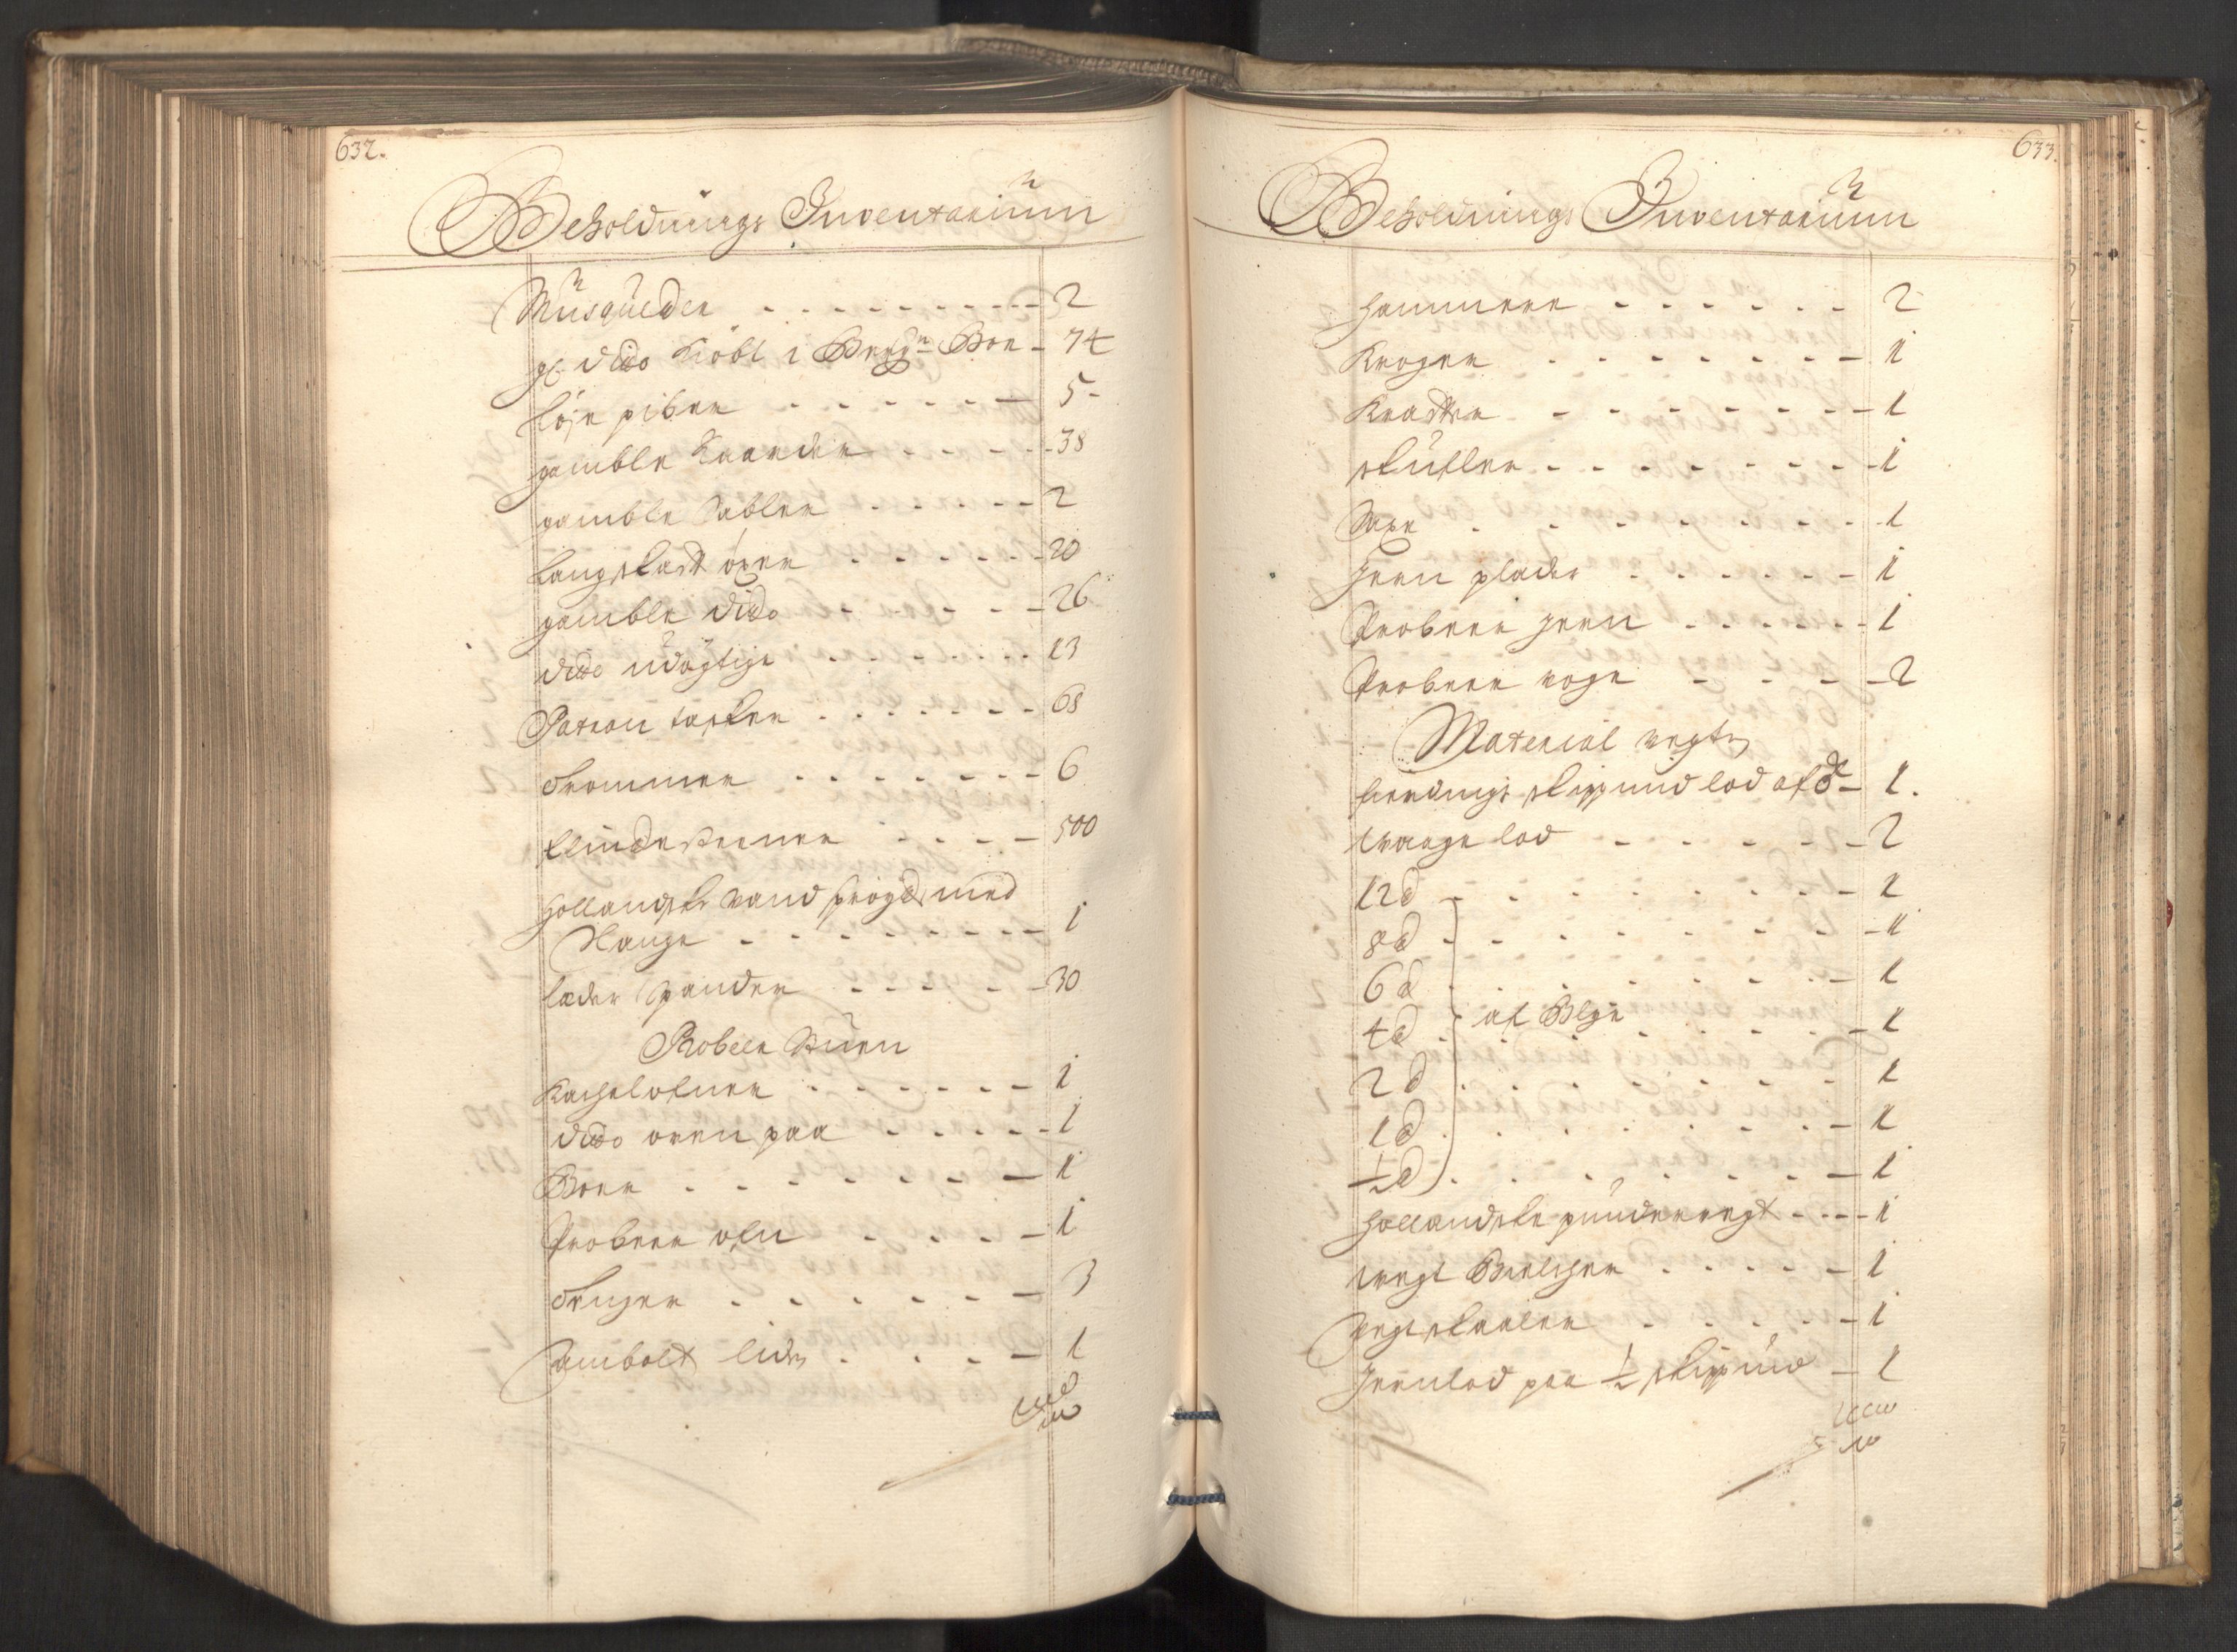 632.
Beholdnings Inventarium
Musqueder 2
gl. dido kiøbt i Berg 74
føje piber 5
gamble 38
gamble Sabler 2
Langskafft øxer 20
gamble dido 26
dido udøgtige 13
Patron tasker 68
Trommer 6
flinde steener 500
Hollandske vand sprøyte med
Slange 1
læder Spander 30
Probeer Stuen
Kachelofner 1
dido oven paa 1
Boer 1
Probeer ofn 1
Tenger 3
Jambolt liden 1
633.
Beholdnings Inventarium
Hammere 2
Kroger 1
Kradser 1
skufler 1
Saxe 1
Jern plader 1
Probeer jern 1
Probeer 2
Material vegten
fierdings skippund lod af 1.
Waage lod 2
12 ℔ 1
8 ℔ 1
6 ℔ 1
4 ℔ af Blye 1
2 ℔ 1
1 ℔ 1
½ ℔ 1
Hollandske punder vegt 1
vegt Bielcher 1
vegtskaaler 1
Jernlod paa ½ skippund 1